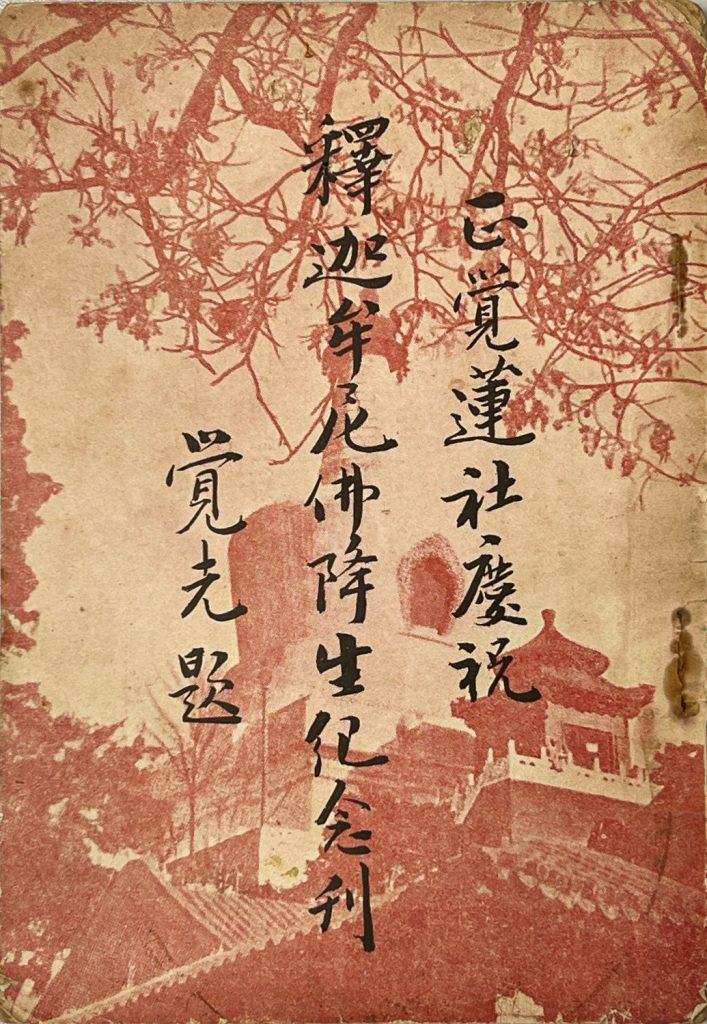 正覺蓮社慶祝
釋迦牟尼佛降生紀念刊
覺光題